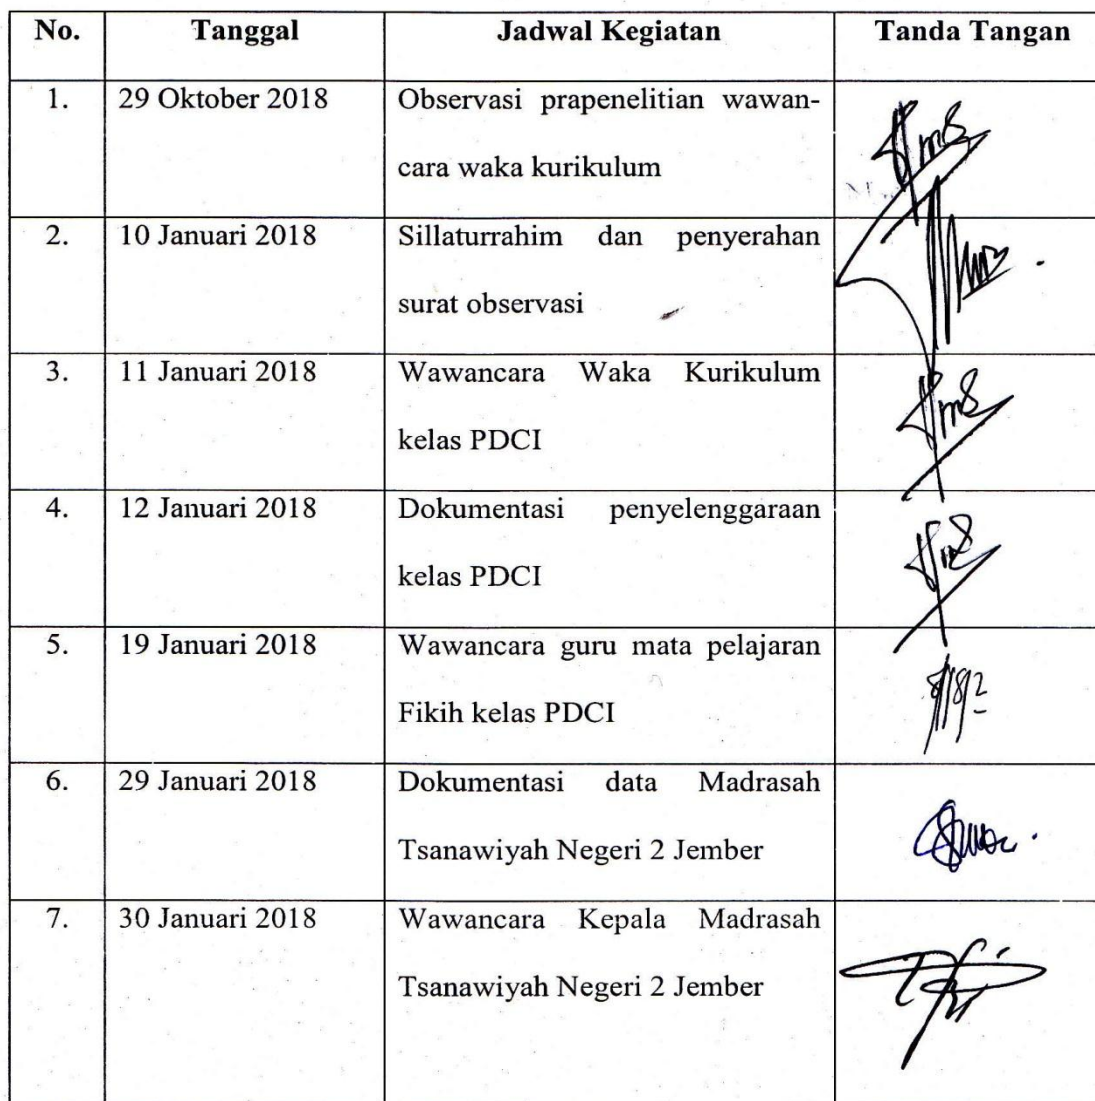 No. Tanggal Jadwal Kegiatan Tanda Tangan
1. 29 Oktober 2018 Observasi prapenelitian wawan-
cara waka kurikulum
2. 10 Januari 2018 Sillaturrahim dan penyerahan
surat observasi
3. 11 Januari 2018 Wawancara Waka Kurikulum
kelas PDCI
4. 12 Januari 2018 Dokumentasi penyelenggaraan
kelas PDCI
5. 19 Januari 2018 Wawancara guru mata pelajaran
Fikih kelas PDCI
6. 29 Januari 2018 Dokumentasi data Madrasah
Tsanawiyah Negeri 2 Jember
7. 30 Januari 2018 Wawancara Kepala Madrasah
Tsanawiyah Negeri 2 Jember